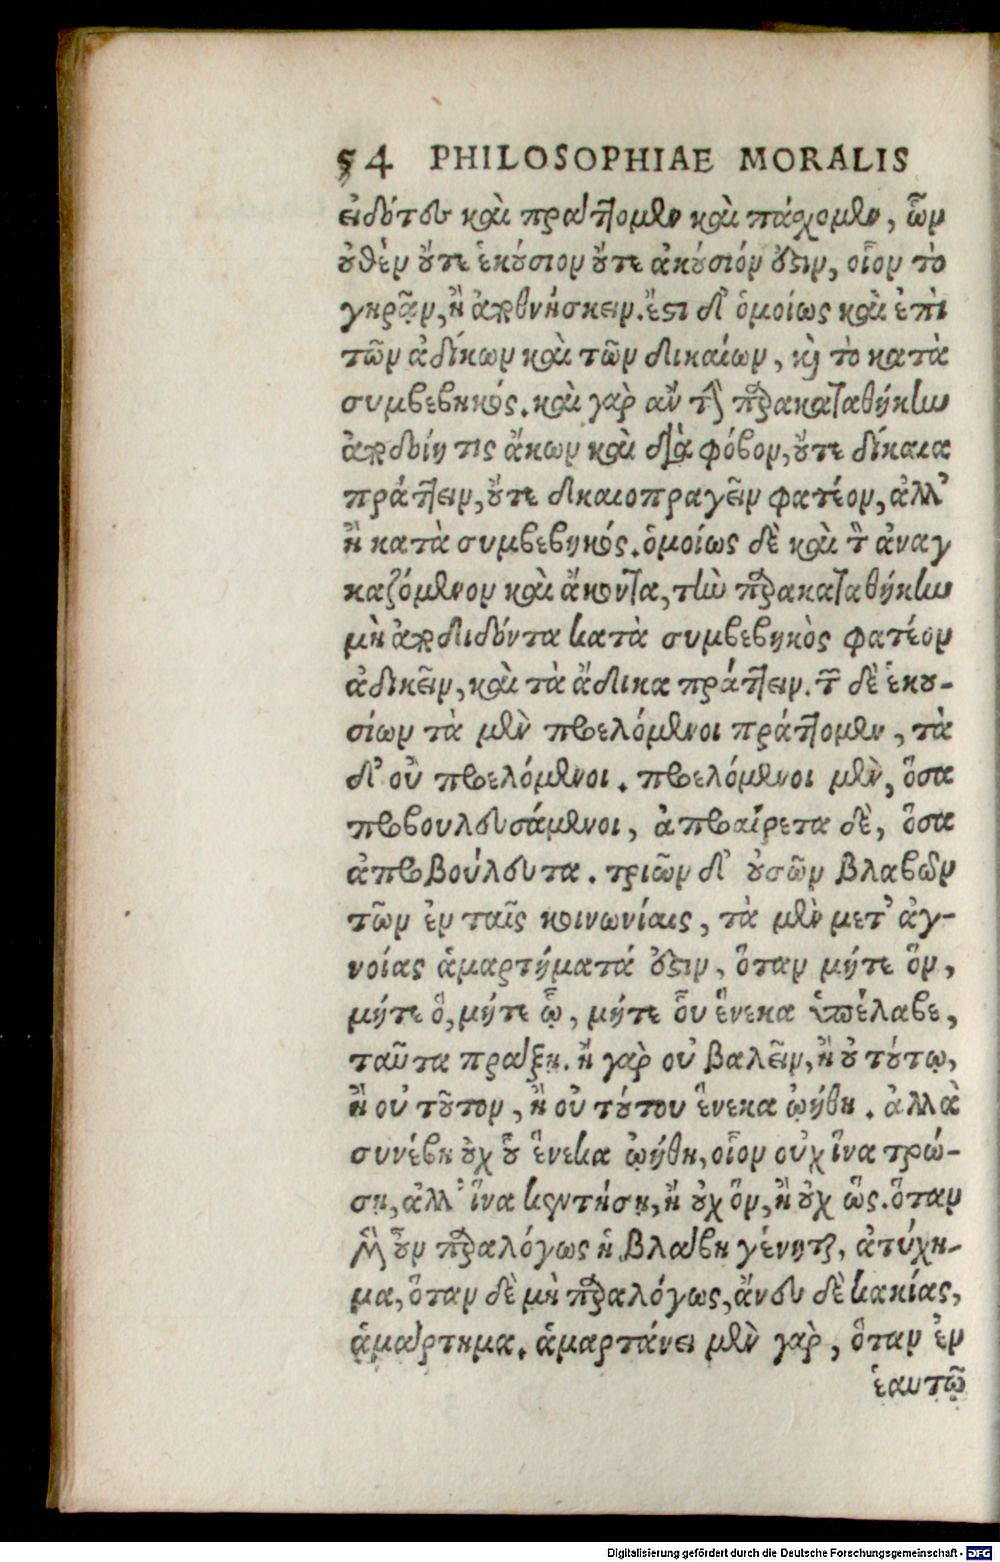 54 PHILOSOPHIAE MORALIS
εἰδότευ καὶ πράττομεν καὶ πάσχομεν, ὧν
οὐθὲν οὔτε ἑκούσιον οὔτε ἀκούσιόν ὅξιν, οἷον τὸ
γηρᾷν, ἢ ἀποθνήσκειν. ἔστι δ᾽ ὁμοίως καὶ ἐπὶ
τῶν ἀδίκων καὶ τῶν δικαίων, καὶ τὸ κατὰ
συμβεβηκός. καὶ γὰρ ἂν τὴν παρακαταθήκην
ἀποδοίη τις ἄκων καὶ διὰ φόβον, οὔτε δίκαια
πράττειν, οὔτε δικαιοπραγεῖν φατέον, ἀλλ᾽
ἢ κατὰ συμβεβηκός. ὁμοίως δὲ καὶ τὸν ἀναγ
καζόμενον καὶ ἄκοντα, τὴν παρακαταθήκην
μὴ ἀποδιδόντα κατὰ συμβεβηκὸς φατέον
ἀδικεῖν, καὶ τὰ ἄδικα πράττειν. τῶν δὲ ἑκου-
σίων τὰ μὲν προελόμενοι πράττομεν, τὰ
δ᾽ οὐ προελόμενοι. προελόμενοι μὲν, ὅσα
προβουλευσάμενοι, ἀπροαίρετα δὲ, ὅσα
ἀπροβούλευτα. τριῶν δ᾽ οὐσῶν βλαβῶν
τῶν ἐν ταῖς κοινωνίαις, τὰ μὲν μετ᾽ ἀγ-
νοίας ἁμαρτήματά ἐστιν, ὅταν μήτε ὃν,
μήτε ὃ, μήτε ᾧ, μήτε οὗ ἕνεκα ὑπέλαβε,
ταῦτα πράξῃ. ἢ γὰρ οὐ βαλεῖν, ἢ οὐ τούτῳ,
ἢ οὐ τοῦτον, ἢ οὐ τούτου ἕνεκα ᾠήθη. ἀλλὰ
συνέβη οὐχ οὗ ἕνεκα ᾠήθη, οἷον οὐχ ἵνα τρώ-
σῃ, ἀλλ᾽ ἵνα κεντήσῃ, ἢ οὐχ ὃν, ἢ οὐχ ὥς. ὅταν
μὲν οὖν παραλόγως ἡ βλάβη γένηται, ἀτύχη-
μα, ὅταν δὲ μὴ παραλόγως, ἄνευ δὲ κακίας,
ἁμάρτημα. ἁμαρτάνει μὲν γὰρ, ὅταν ἐν
ἑαυτῷ
Digitalisierung gefördert durch die Deutsche Forschungsgemeinschaft - DFG